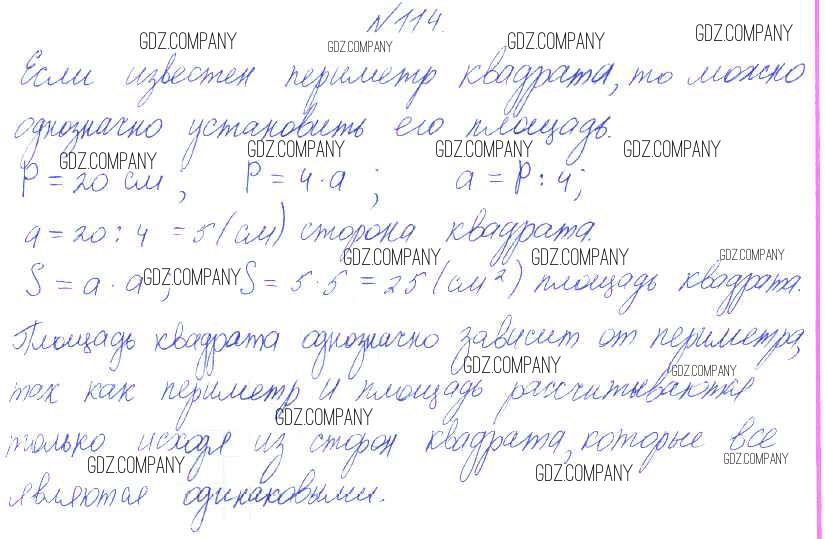 №114.
Если известен периметр квадрата, то можно
однозначно установить его площадь.
P = 20 см; P = 4·a; a = P : 4;
a = 20 : 4 = 5 (см) сторона квадрата.
S = a · a; S = 5·5 = 25 (см²) площадь квадрата.
Площадь квадрата однозначно зависит от периметра,
так как периметр и площадь рассчитываются
только исходя из сторон квадрата, которые все
являются одинаковыми.
GDZ.COMPANY GDZ.COMPANY GDZ.COMPANY GDZ.COMPANY
GDZ.COMPANY GDZ.COMPANY GDZ.COMPANY GDZ.COMPANY
GDZ.COMPANY GDZ.COMPANY GDZ.COMPANY GDZ.COMPANY
GDZ.COMPANY GDZ.COMPANY
GDZ.COMPANY
GDZ.COMPANY GDZ.COMPANY GDZ.COMPANY